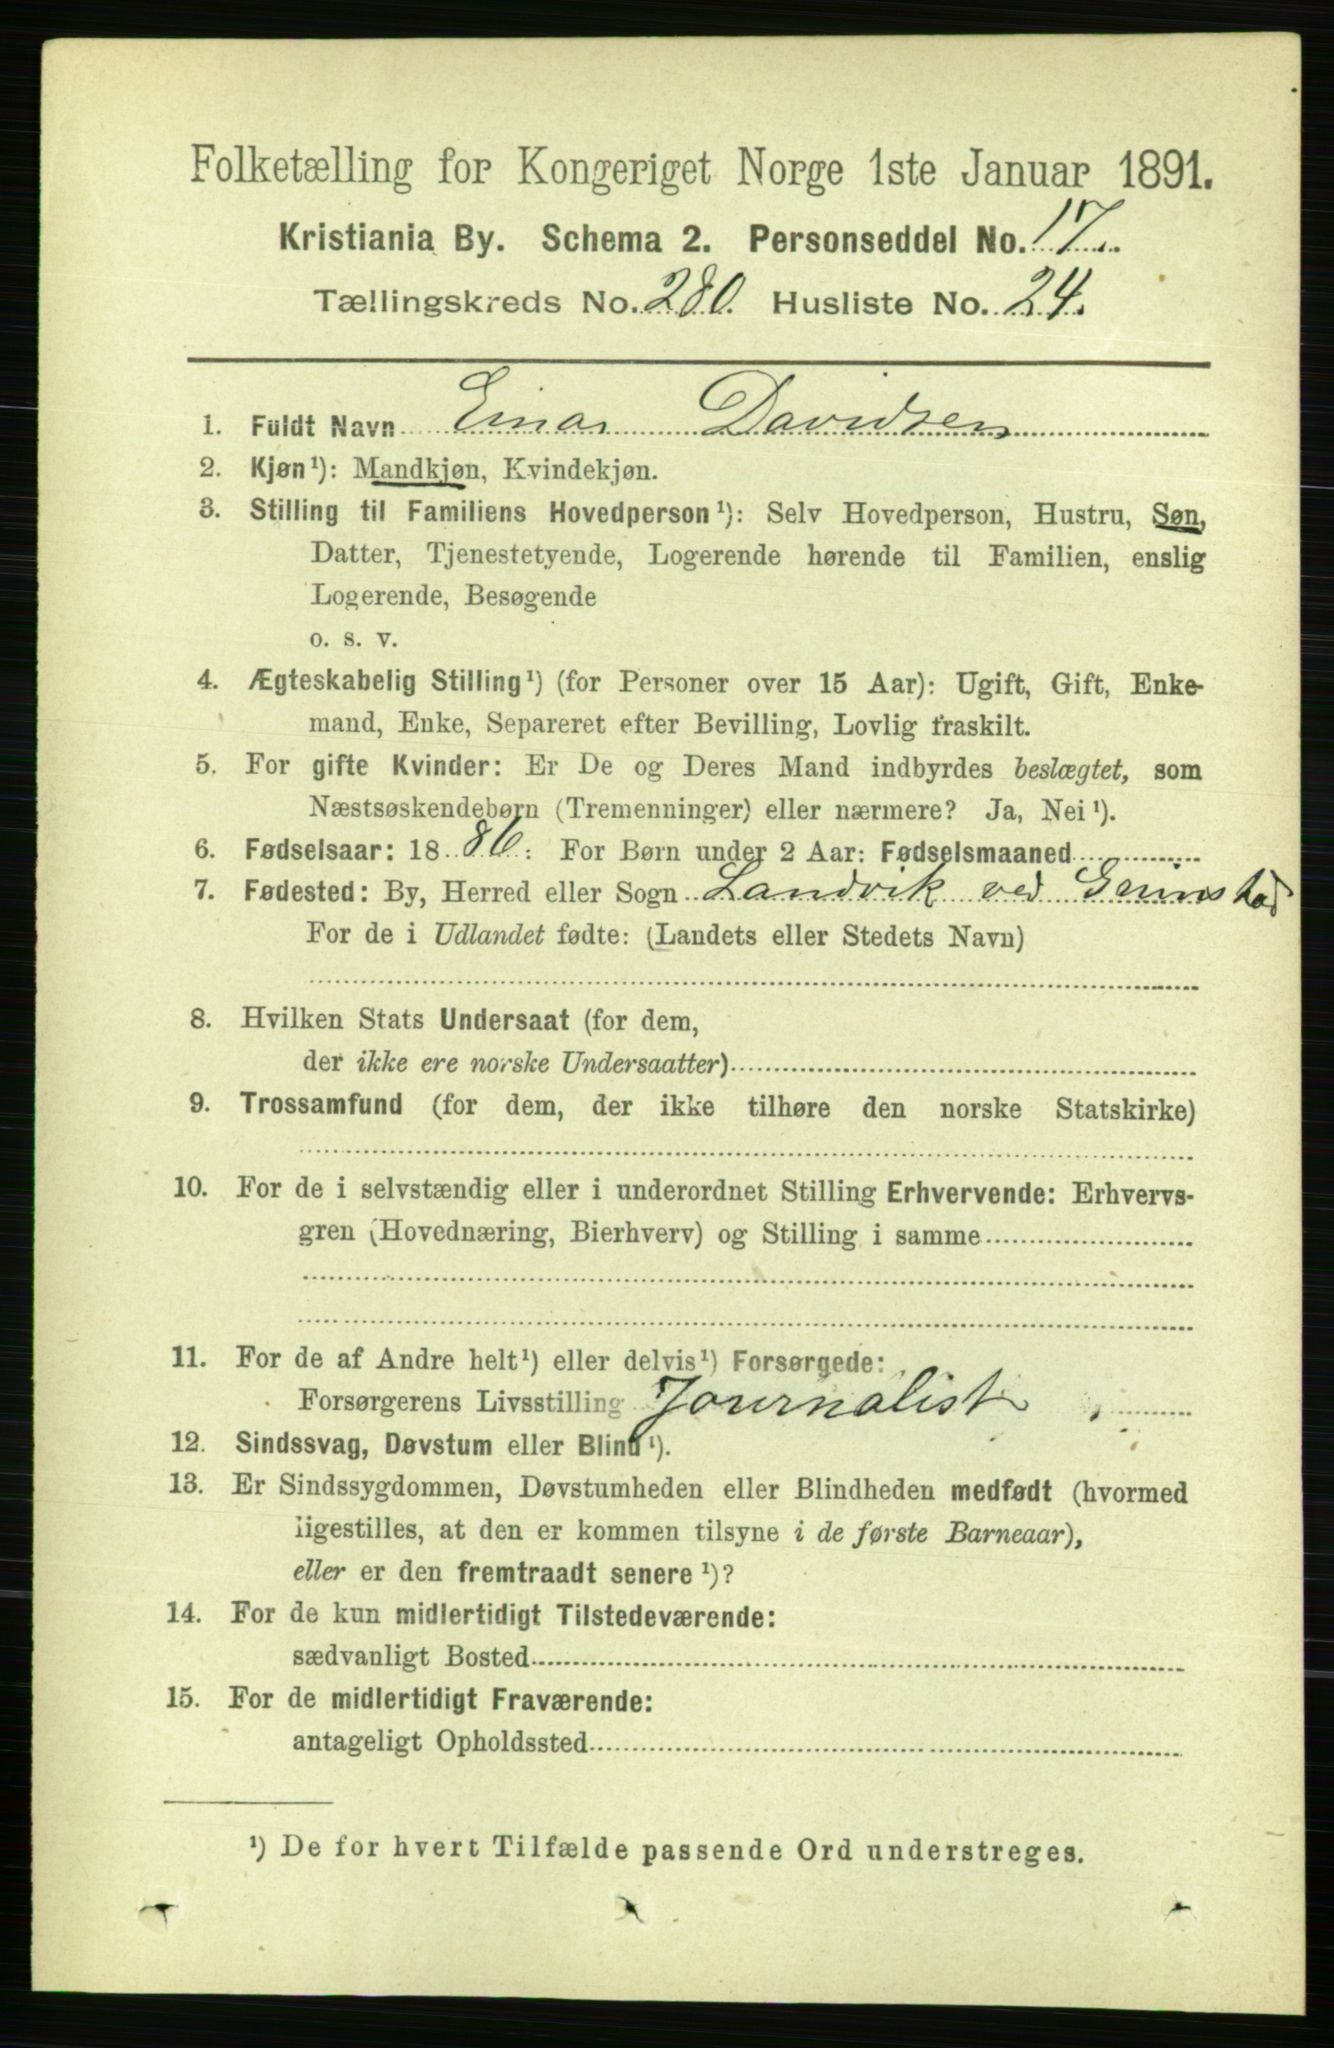 Folketælling for Kongeriget Norge 1ste Januar 1891.
Kristiania By. Schema 2. Personseddel No. 17.
Tællingskreds No. 280. Husliste No. 24.
1. Fuldt Navn Einar Davidsen
2. Kjøn¹): Mandkjøn, Kvindekjøn.
3. Stilling til Familiens Hovedperson¹): Selv Hovedperson, Hustru, Søn,
Datter, Tjenestetyende, Logerende hørende til Familien, enslig
Logerende, Besøgende
o. s. v.
4. Ægteskabelig Stilling¹) (for Personer over 15 Aar): Ugift, Gift, Enke-
mand, Enke, Separeret efter Bevilling, Lovlig fraskilt.
5. For gifte Kvinder: Er De og Deres Mand indbyrdes beslægtet, som
Næstsøskendebørn (Tremenninger) eller nærmere? Ja, Nei¹).
6. Fødselsaar: 1886: For Børn under 2 Aar: Fødselsmaaned
7. Fødested: By, Herred eller Sogn Landvik ved Grimstad
For de i Udlandet fødte: (Landets eller Stedets Navn)
8. Hvilken Stats Undersaat (for dem,
der ikke ere norske Undersaatter)
9. Trossamfund (for dem, der ikke tilhøre den norske Statskirke)
10. For de i selvstændig eller i underordnet Stilling Erhvervende: Erhvervs-
gren (Hovednæring, Bierhverv) og Stilling i samme
11. For de af Andre helt¹) eller delvis¹) Forsørgede:
Forsørgerens Livsstilling Journalist
12. Sindssvag, Døvstum eller Blind¹).
13. Er Sindssygdommen, Døvstumheden eller Blindheden medfødt (hvormed
ligestilles, at den er kommen tilsyne i de første Barneaar),
eller er den fremtraadt senere¹)?
14. For de kun midlertidigt Tilstedeværende:
sædvanligt Bosted
15. For de midlertidigt Fraværende:
antageligt Opholdssted
¹) De for hvert Tilfælde passende Ord understreges.